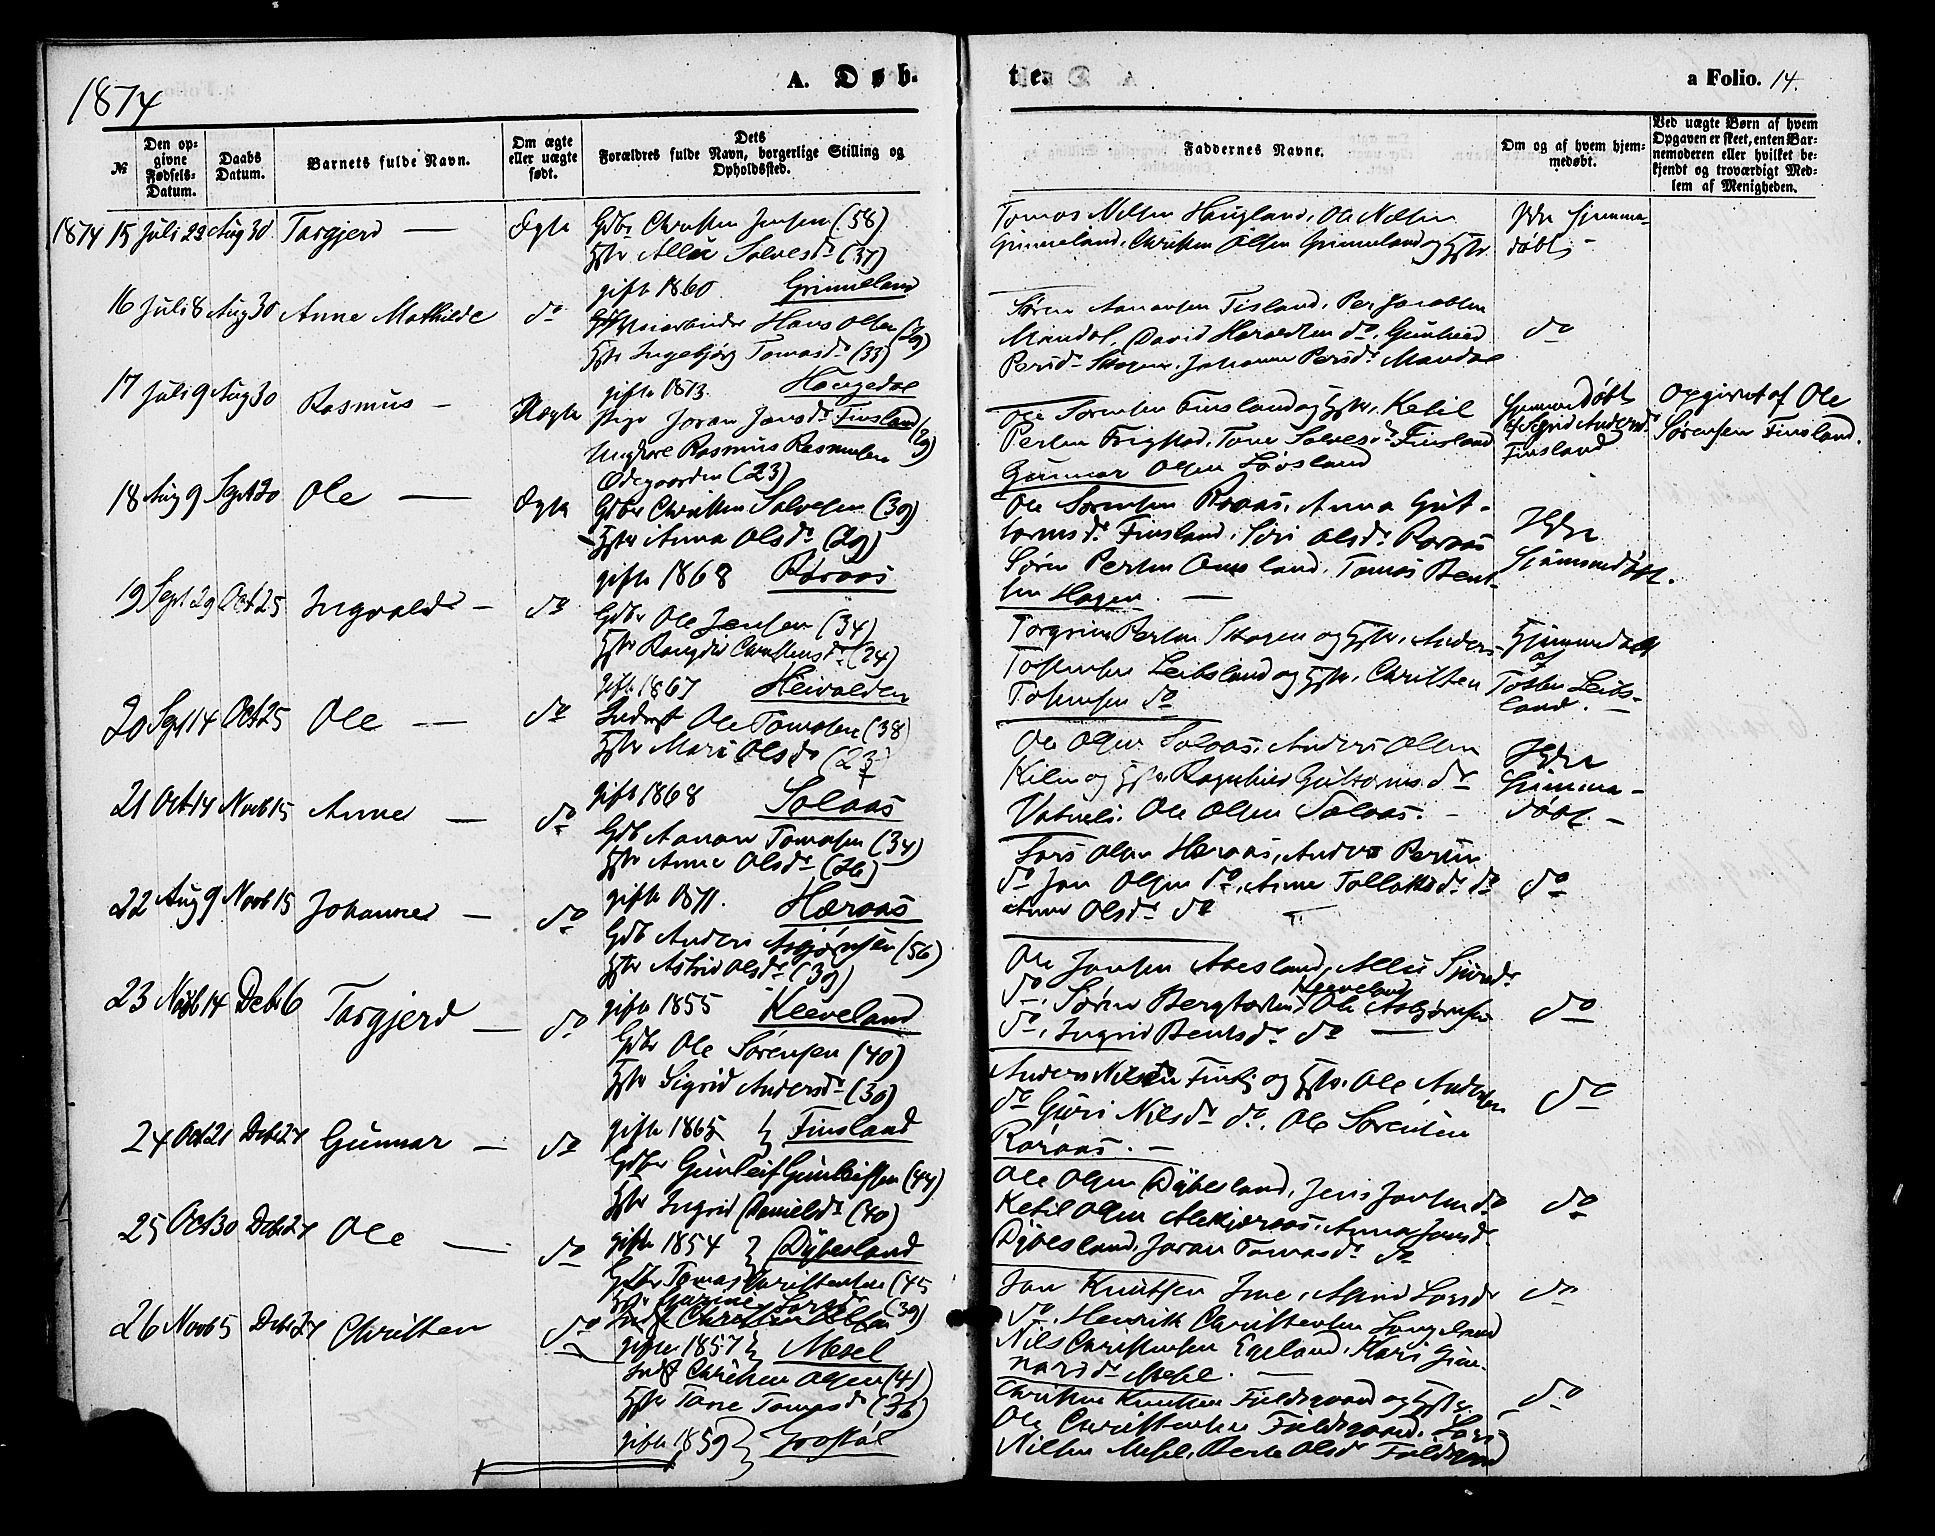 1874
A. Døb-
te.
a Folio. 14.
№
Den op-
givne
Fødsels-
Datum.
Daabs
Datum.
Barnets fulde Navn.
Om ægte
eller uægte
født.
Dets
Forældres fulde Navn, borgerlige Stilling og
Opholdssted.
Faddernes Navne.
Om og af hvem hjem-
medøbt.
Ved uægte Børn af hvem
Opgaven er skeet, enten Bar-
nemoderen eller hvilket be-
kjendt og troværdigt Med-
lem af Menigheden.
1874 15 Juli 29 Aug 30 Targjerd — Ægte
Gdbr Christen Jensen (58)
Hstr Allis Salvesdr (37)
gift 1860 Grimeland
Tomas Nilsen Haugland, Ole Nilsen
Grimeland, Christen Olsen Grimeland og Hstr
Ikke hjemme-
døbt –
16 Juli 8 Aug 30 Anne Mathilde do
Hans Olsen (29)
Hstr Ingebjørg Tomasdr (33)
gift 1873. Haugedal
Søren Aanensen Tisland, Per Jacobsen
Mandal, David Haraldsen do, Gunhild
Persdr Skogen, Johanne Persdr Mandal
do
17 Juli 9 Aug 30 Rasmus – Uægte
Pige Joran Jonsdr Finsland (29)
Ungkarl Rasmus Rasmusen
Ødegaarden (23)
Ole Sørensen Finsland og Hstr, Ketil
Persen Frigstad, Tone Salvesdr Finsland
Gunnar Olsen Løvsland
Hjemmedøbt
af Sigrid Andersdr
Finsland
Opgivet af Ole
Sørensen Finsland.
18 Aug 9 Sept 20 Ole — Ægte
Gdbr Christen Salvesen (39)
Hstr Anna Olsdr (29)
gift 1868 Røraas
Ole Sørensen Roraas, Anna Gut-
tormsdr Finsland, Siri Olsdr Roraas
Søren Persen Omsland, Tomas Bent-
sen Hagen. —
Ikke
hjemmedøbt.
19 Sept 29 Oct 25 Ingvald – do
Gdbr Ole Jensen (34)
Hstr Rangdi Christensdr (24)
gift 1867 Heivolden
Torgrim Persen Skogen og Hstr, Anders
Tostensen Leibsland og Hstr, Christen
Tostensen do
Hjemmedøbt
af
Tosten Leibs-
land. –
20 Sept 14 Oct 25 Ole — do
Inderst Ole Tomasen (38)
Hstr Mari Olsdr (23)
gift 1868 Solaas
Ole Olsen Solaas, Anders Olsen
Kilen og Hstr, Ragnhild Guttormsdr
Vatneli, Ole Olsen Solaas. –
Ikke
hjemme-
døbt. –
21 Oct 14 Novb 15 Anne — do
Gdb Aanon Tomasen (34)
Hstr Anne Olsdr (26)
gift 1871. Hæraas
Lars Olsen Hæraas, Anders Persen
do Jon Olsen do, Anne Tallaksdr do
Anne Olsdr do –
do
22 Aug 9 Novb 15 Johannes – do
Gdb Anders Asbjørnsen (56)
Hstr Astrid Olsdr (39)
gift 1855 Kleeveland
Ole Jonsen Aaesland, Allis Sjursdr
do, Søren Bergtorsen Kleeveland, Ole Asbjørnsen
do, Ingrid Bentsdr do —
do
23 Novb 14 Decb 6 Targjerd — do
Gdbr Ole Sørensen (40)
Hstr Sigrid Andersdr (30)
gift 1865 } Finsland
Anders Nilsen Finslj og Hstr, Ole Andersen
do Guri Nilsdr do, Ole Sørensen
Roraas. –
do
24 Oct 21 Decb 27 Gunnar — do
Gdbr Gunleif Gunleifsen (44)
Hstr Ingrid Danielsdr (40)
gift 1854 } Dybesland
Ole Olsen Dybesland, Jens Jonsen do
Ketil Olsen Alekjæraas, Anna Jonsdr
Dybesland, Joran Tomasdr do
do
25 Oct 30 Decb 27 Ole — do
Gdbr Tomas Christensen (45
Hstr Larsdr (39)
gift 1857 } Mesel
Jon Knutsen Ime, Larsdr
do, Henrik Christensen Langeland
Nils Christensen Egeland, Kari Gun-
narsdr Mesel. —
do
26 Novb 5 Decb 27 Christen do
Inds Christen Olsen (41)
Hstr Tone Tomasdr (36)
gift 1859 }
Christen Knutsen Fuldsgaard og Hstr
Ole Christensen Fuldsgaard, Lars
Nilsen Mesel, Berte Olsdr Fuldsgaard
do